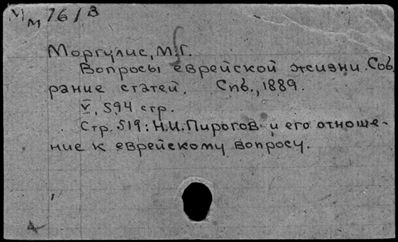 М 76/3
Моргулис, М.Г.
Вопросы еврейской жизни. Соб-
рание статей. Спб., 1889.
V, 594 стр.
Стр. 519: Н.И. Пирогов и его отноше-
ние к еврейскому вопросу.